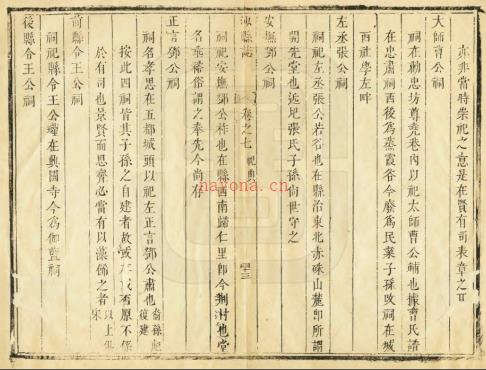 亦非當時崇祀之意是在賢有司表章之耳
大師曹公祠
祠在勸忠坊尊堯巷內以祀太師曹公輔也據曹氏譜
在忠肅祠西後為蒸霞谷今廢為民業子孫改祠在城
西社學左畔
左丞張公祠
祠祀左丞張公若谷也在縣治東北赤硃山麓卽所謂
開先堂也迄圯張氏子孫尚世守之
安撫鄧公祠
沙縣志 卷之七 祀典 四十三
祠祀安撫鄧公祚也在縣西南歸仁里卽今荆村也堂
名奉稀俗謂之奉先今尚存
正言鄧公祠
祠名孝思在五都城頭以祀左正言鄧公肅也裔孫
復建
按此四祠皆其子孫之自建者故或存或否原不係
於有司也景賢而思齊必當有以藻飾之者以上張
宋
前縣令王公祠
祠祀縣令王公瓘在興國寺今為伽藍祠
後縣令王公祠
nayona.cn